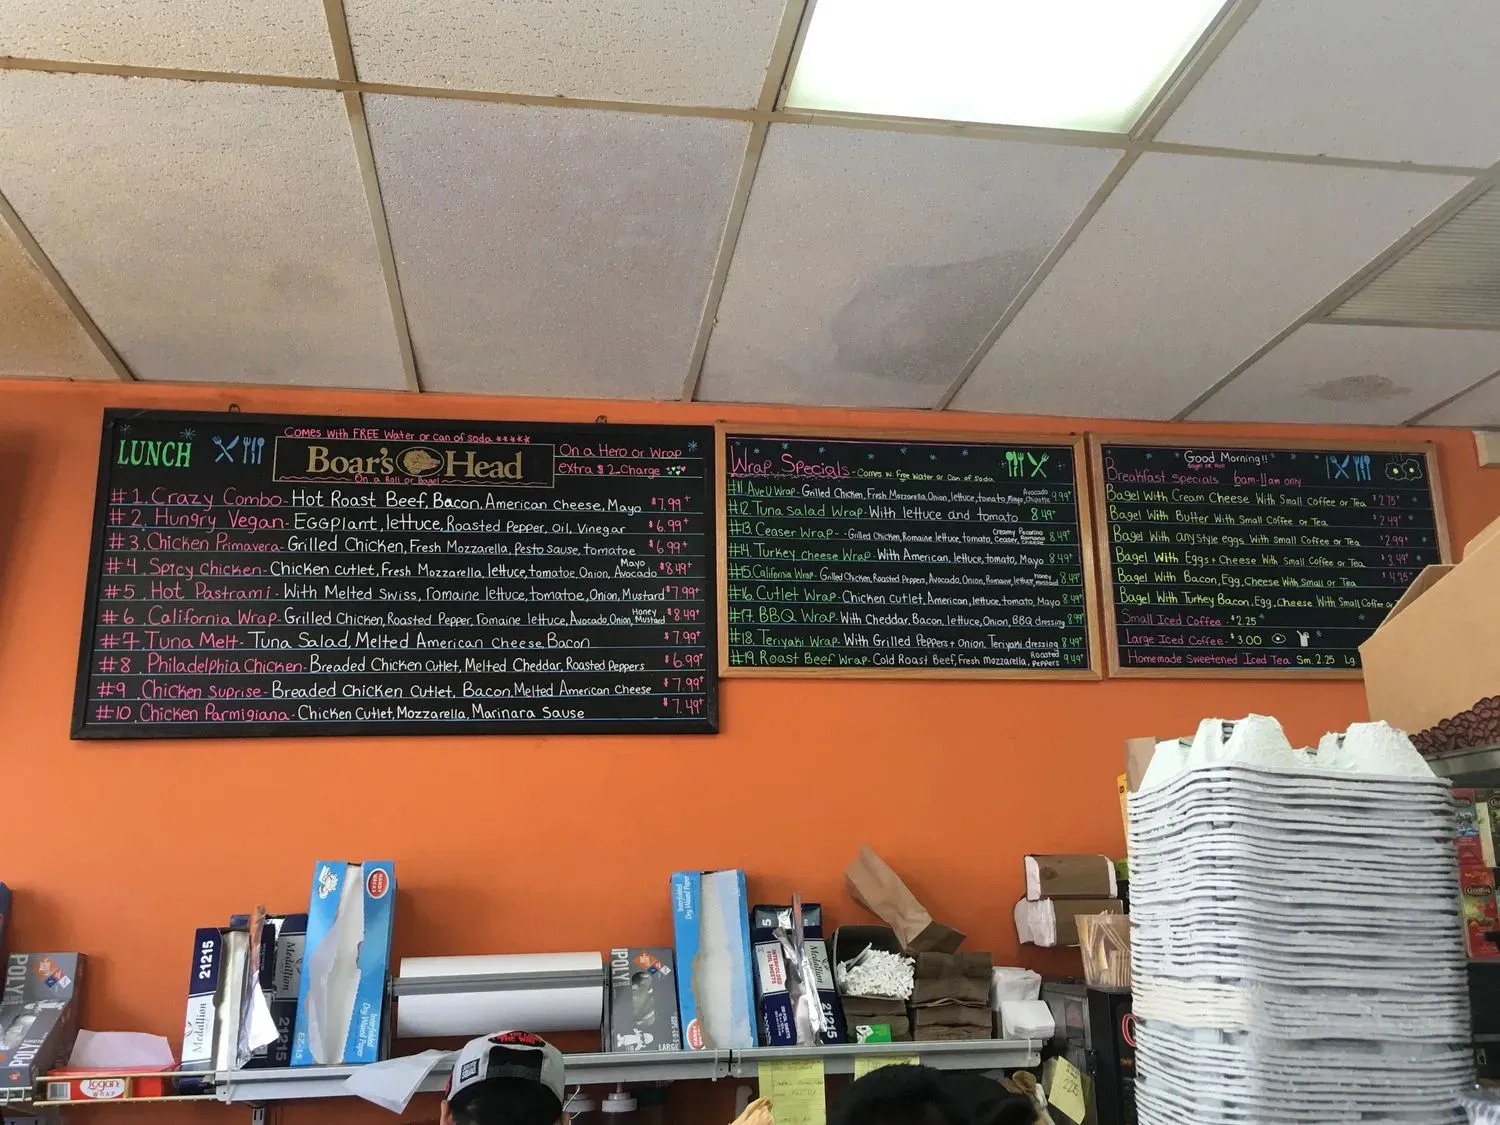 LUNCH
Comes with FREE Water or Can of soda
Boar's Head
On a Roll or Bagel
On a Hero or Wrap
extra $2 Charge
#1. Crazy Combo - Hot Roast Beef, Bacon, American Cheese, Mayo $7.99+
#2. Hungry Vegan - Eggplant, lettuce, Roasted Pepper, Oil, Vinegar $6.99+
#3. Chicken Primavera - Grilled Chicken, Fresh Mozzarella, Pesto Sause, tomatoe $6.99+
#4. Spicy Chicken - Chicken cutlet, Fresh Mozzarella, lettuce, tomatoe, Onion, Mayo Avocado $8.49+
#5. Hot Pastrami - With Melted Swiss, romaine lettuce, tomatoe, Onion, Mustard $7.99+
#6. California Wrap - Grilled Chicken, Roasted Pepper, romaine lettuce, Avocado, Onion, Honey Mustard $8.49+
#7. Tuna Melt - Tuna Salad, Melted American Cheese, Bacon $7.99+
#8. Philadelphia Chicken - Breaded Chicken Cutlet, Melted Cheddar, Roasted Peppers $6.99+
#9. Chicken Suprise - Breaded Chicken Cutlet, Bacon, Melted American Cheese $7.99+
#10. Chicken Parmigiana - Chicken Cutlet, Mozzarella, Marinara Sause $7.49+
Wrap Specials - Comes w. Free Water or Can of Soda
#11. Ave U Wrap - Grilled Chicken, Fresh Mozzarella, Onion, lettuce, tomato, Mayo, Avocado Chipotle 9.99+
#12. Tuna Salad Wrap - With lettuce and tomato 8.49+
#13. Ceaser Wrap - Grilled Chicken, Romaine lettuce, tomato, Creamy Ceaser, Pecorino Romano Cheese 8.49+
#14. Turkey cheese Wrap - With American, lettuce, tomato, Mayo 8.49+
#15. California Wrap - Grilled Chicken, Roasted Peppers, Avocado, Onion, Romaine lettuce, honey mustard 8.49+
#16. Cutlet Wrap - Chicken Cutlet, American, lettuce, tomato, Mayo 8.49+
#17. BBQ Wrap - With Cheddar, Bacon, lettuce, Onion, BBQ dressing 8.99+
#18. Teriyaki Wrap - With Grilled Peppers + Onion, Teriyaki dressing 8.49+
#19. Roast Beef Wrap - Cold Roast Beef, Fresh Mozzarella, Roasted Peppers 9.49+
Good Morning!!
Bagel or Roll
Breakfast Specials 6am-11am only
Bagel With Cream Cheese With Small Coffee or Tea $2.75+
Bagel With Butter With Small Coffee or Tea $2.49+
Bagel With Any Style eggs With Small Coffee or Tea $2.99+
Bagel With Eggs + Cheese With Small Coffee or Tea $3.49+
Bagel With Bacon, Egg, Cheese With Small or Tea $4.75+
Bagel With Turkey Bacon, Egg, Cheese With Small Coffee or
Small Iced Coffee - $2.25+
Large Iced Coffee - $3.00
Homemade Sweetened Iced Tea Sm. 2.25 Lg.
21215
Medallion
Medallion
21215
Interfolded
Dry Waxed Paper
HANDY WACKS
EZ-15
POLY
LARGE
Interfolded
Dry Waxed Paper
HANDY WACKS
INTERFOLDED
FOIL SHEETS
Medallion
21215
POLY
Logan
WRAP